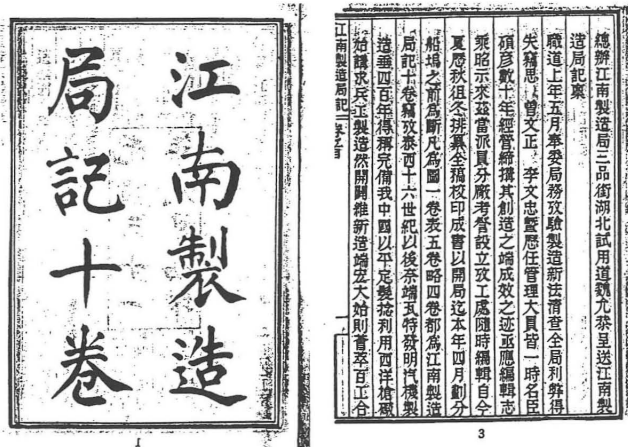 江南製造
局記十卷
1
總辦江南製造局三品銜湖北試用道魏允恭呈送江南製
造局記稟
職道上年五月奉委局務攷驗製造新法清查全局利弊得
失竊思 曾文正 李文忠暨歷任管理大員皆一時名臣
碩彥數十年經營締搆其創造之端成效之迹亟應編輯志
乘昭示來茲當派員分廠考詧設立攷工處隨時編輯自今
夏歷秋徂冬排纂全稿校印成書以開局迄本年四月劃分
船塢之前為斷凡為圖一卷表五卷略四卷都為江南製造
局記十卷竊攷泰西十六世紀以後奈端瓦特發明汽機製
造垂四百年得稱完備我中國以平定髮捻利用西洋槍礮
始講求兵工製造然開闢維新造端宏大始則薈萃百工合
江南製造局記 卷之首 一
3